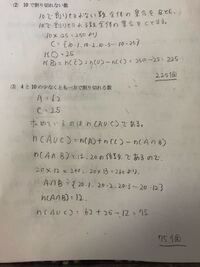 ② 10で割り切れない数
10で割り切れない数全体の集合を
10で割り切れる数全体の集合をCとする。
10×25=250より
C={10・1、10・2、10・3…10・25}
n(C)=25
n(B)=n(C)=n(U)-n(C)=250-25=225
225個
③ 4と10の少なくとも一方で割り切れる数
A=62
C=25
求めているのはn(A∪C)である。
n(A∪C)=n(A)+n(C)-n(A∩C)
20×12=240、20×13=260より
A∩C={20・1、20・2、20・3…20・12}
n(A∩C)=12
n(A∪C)=62+25-12=75
75個